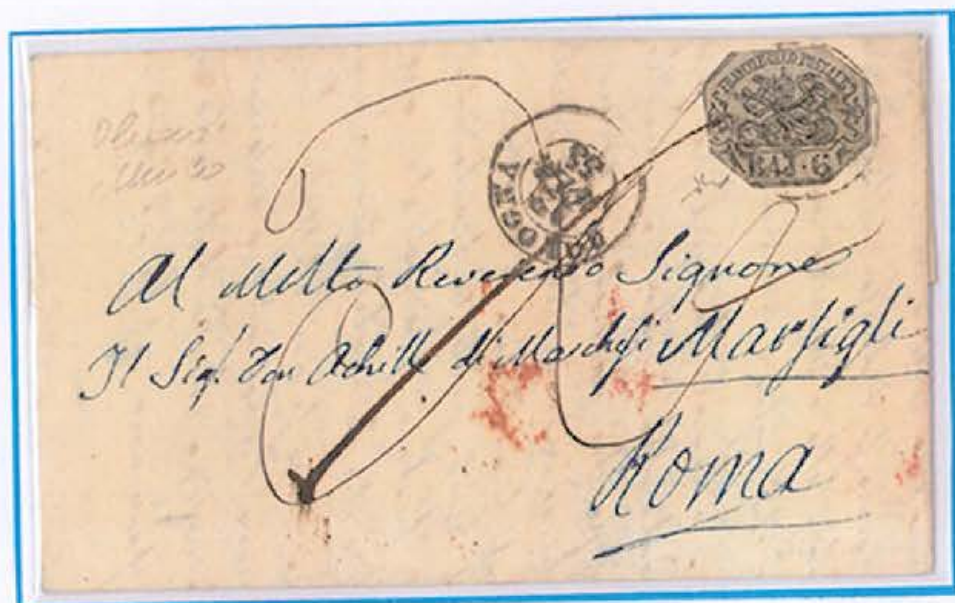 FRANCO BOLLO POSTALE
BAJ·6
BOLOGNA
55
Al Molto Reverendo Signore
Il Sigr. Don Achille dei Marchesi Marsigli
Roma